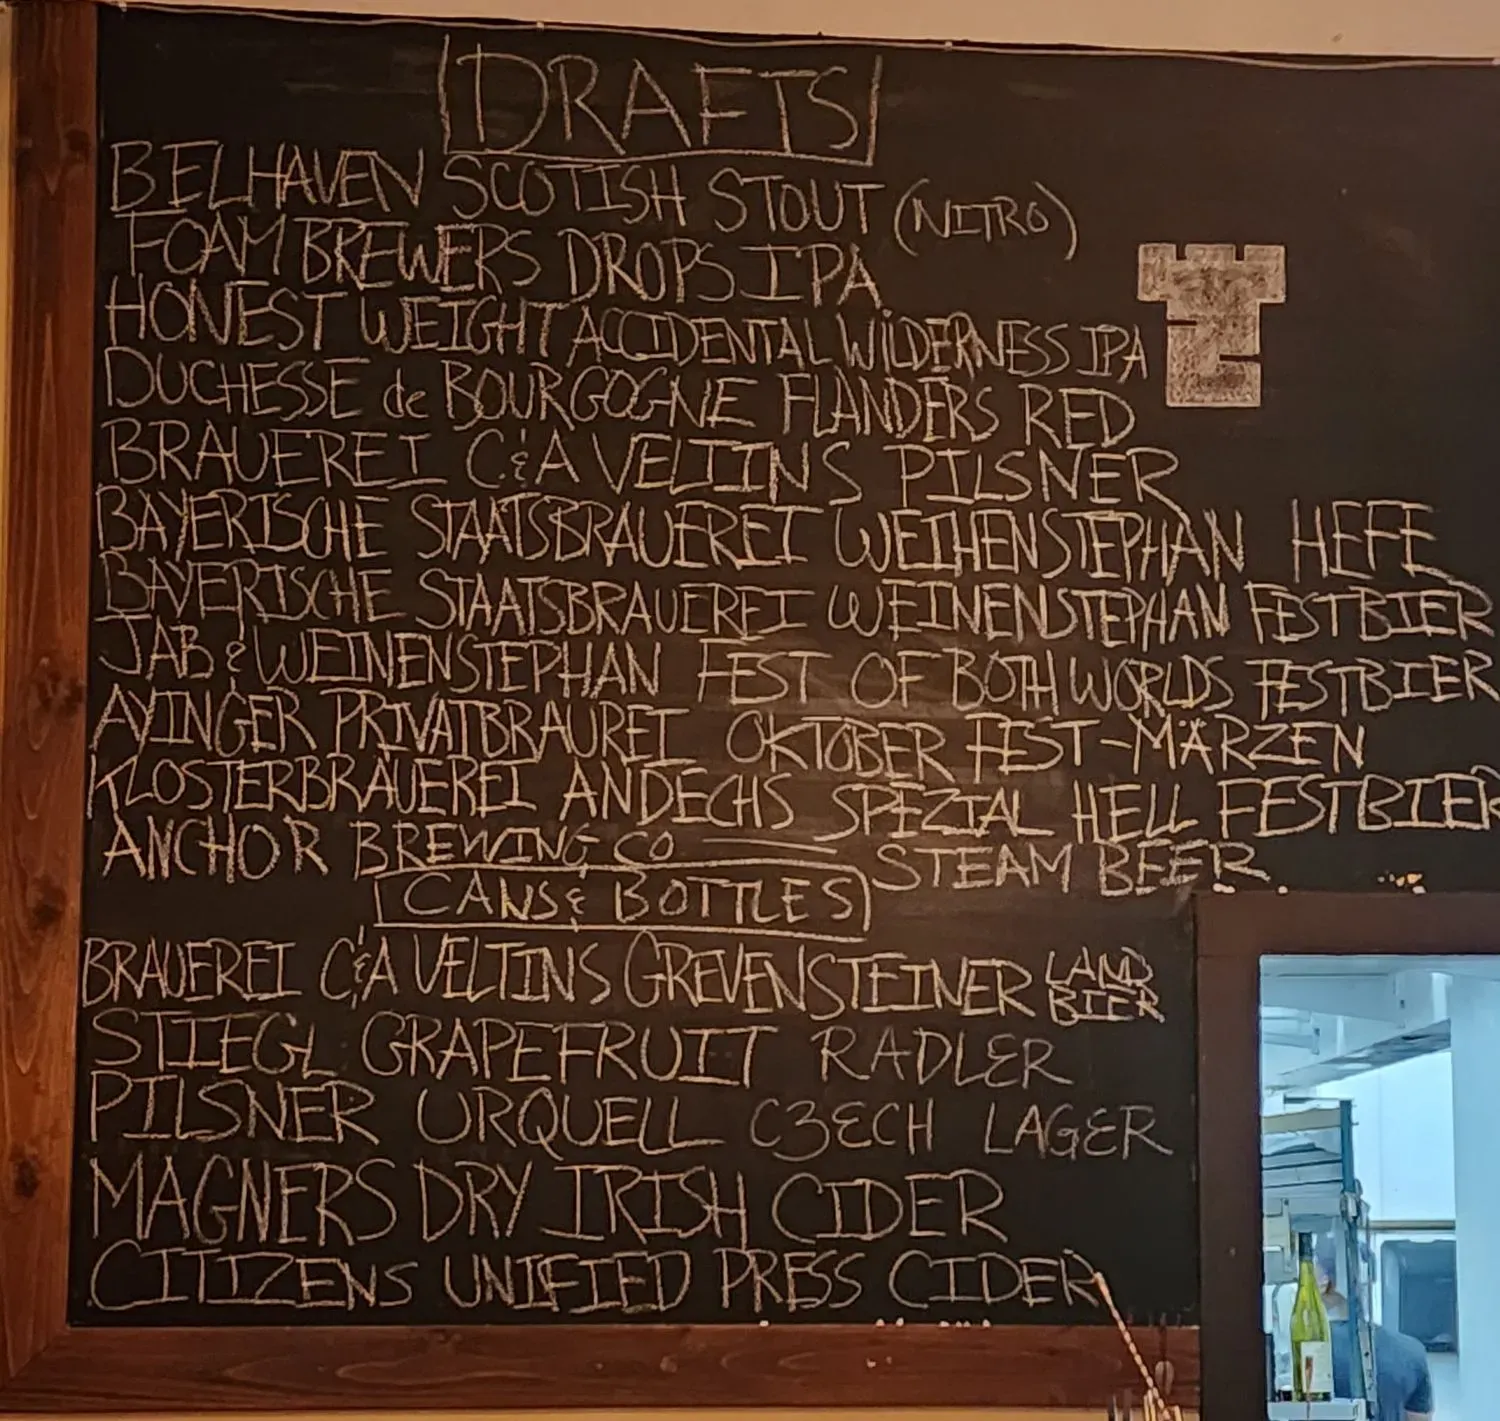 DRAFTS
BELHAVEN SCOTISH STOUT (NITRO)
FOAM BREWERS DROPS IPA
HONEST WEIGHT ACCIDENTAL WILDERNESS IPA
DUCHESSE de BOURGOGNE FLANDERS RED
BRAUEREI C&A VELTINS PILSNER
BAYERISCHE STAATSBRAUEREI WEIHENSTEPHAN HEFE
BAYERISCHE STAATSBRAUEREI WEINENSTEPHAN FESTBIER
JAB & WEINENSTEPHAN FEST OF BOTH WORLDS FESTBIER
AYINGER PRIVATBRAUREI OKTOBER FEST-MÄRZEN
KLOSTERBRAUEREI ANDECHS SPEZIAL HELL FESTBIER
ANCHOR BREWING CO STEAM BEER
CANS & BOTTLES
BRAUEREI C&A VELTINS GREVENSTEINER LAND BIER
STIEGL GRAPEFRUIT RADLER
PILSNER URQUELL CZECH LAGER
MAGNERS DRY IRISH CIDER
CITIZENS UNIFIED PRESS CIDER